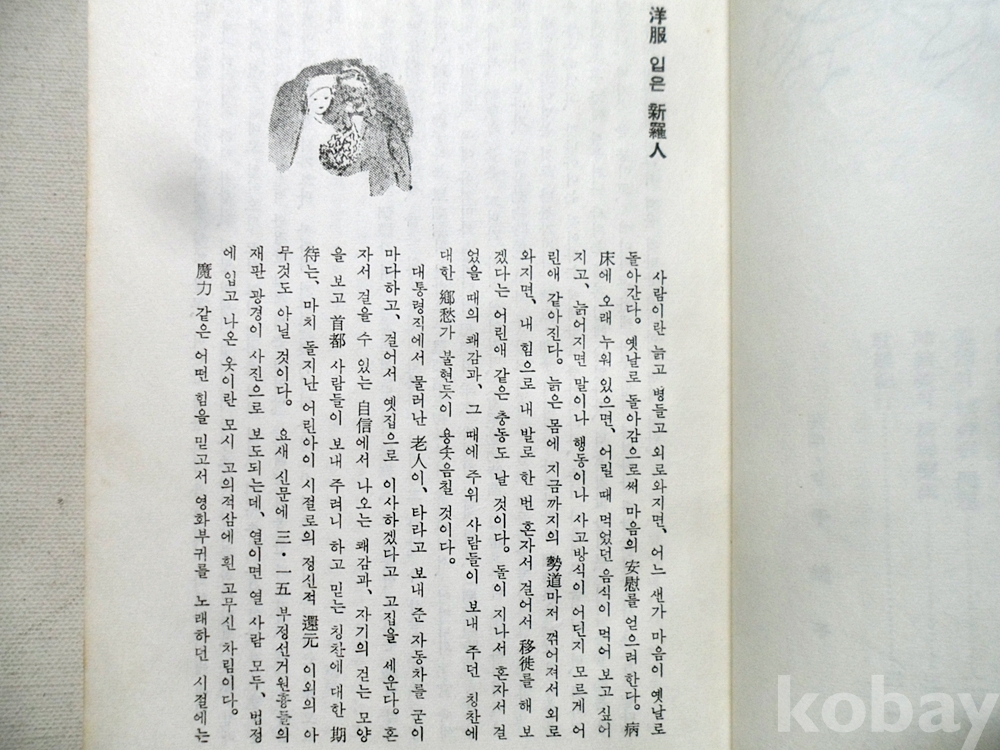 洋服 입은 新羅人
사람이란 늙고 병들고 외로와지면, 어느 샌가 마음이 옛날로
돌아간다. 옛날로 돌아감으로써 마음의 安慰를 얻으려 한다. 病
床에 오래 누워 있으면, 어릴 때 먹었던 음식이 먹어 보고 싶어
지고, 늙어지면 말이나 행동이나 사고방식이 어딘지 모르게 어
린애 같아진다. 늙은 몸에 지금까지의 勢道마저 꺾어져서 외로
와지면, 내 힘으로 내 발로 한 번 혼자서 걸어서 移徙를 해 보
겠다는 어린애 같은 충동도 날 것이다. 돌이 지나서 혼자서 걸
었을 때의 쾌감과, 그 때에 주위 사람들이 보내 주던 칭찬에
대한 鄕愁가 불현듯이 용솟음칠 것이다.
대통령직에서 물러난 老人이, 타라고 보내 준 자동차를 굳이
마다하고, 걸어서 옛집으로 이사하겠다고 고집을 세운다. 혼
자서 걸을 수 있는 自信에서 나오는 쾌감과, 자기의 걷는 모양
을 보고 首都 사람들이 보내 주려니 하고 믿는 칭찬에 대한 期
待는, 마치 돌지난 어린아이 시절로의 정신적 還元 이외의 아
무것도 아닐 것이다. 요새 신문에 三·一五 부정선거원흉들의
재판 광경이 사진으로 보도되는데, 열이면 열 사람 모두, 법정
에 입고 나온 옷이란 모시 고의적삼에 흰 고무신 차림이다.
魔力 같은 어떤 힘을 믿고서 영화부귀를 노래하던 시절에는
kobay